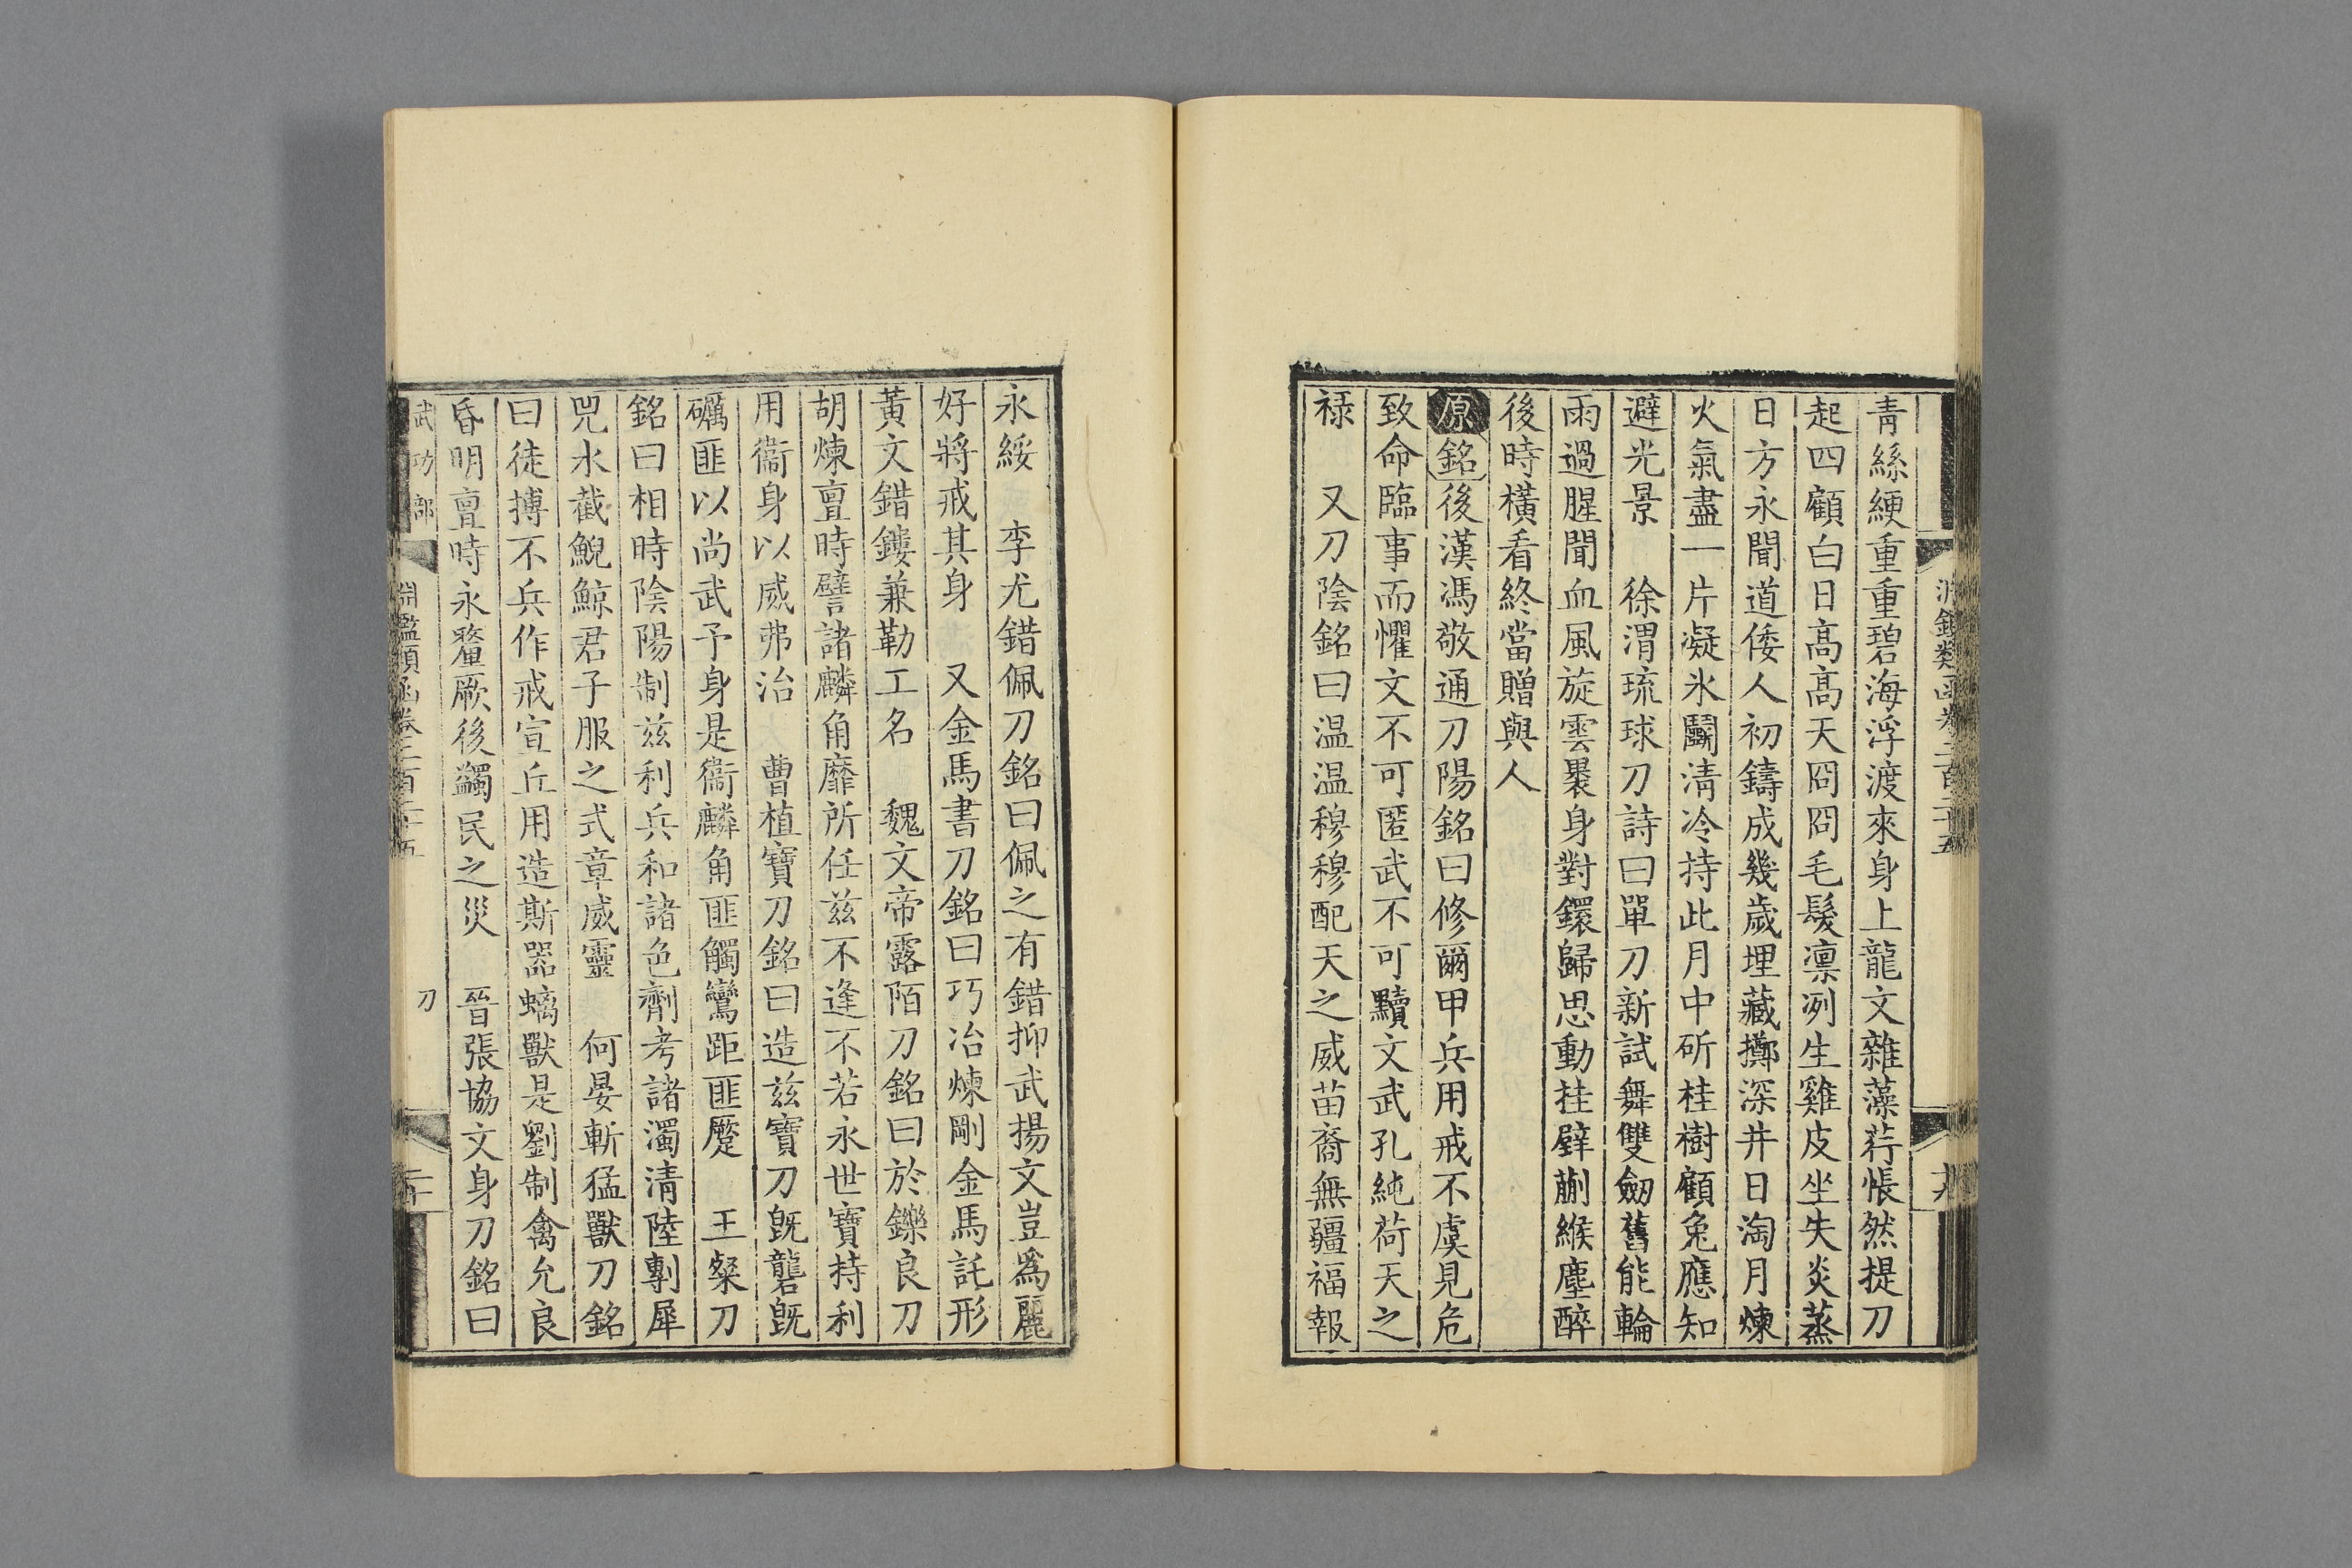 青絲綆重重碧海浮渡來身上龍文雜藻荇悵然提刀
起四顧白日高高天冏冏毛髮凛冽生雞皮坐失炎蒸
日方永聞道倭人初鑄成幾歲埋藏擲深井日淘月煉
火氣盡一片凝氷鬭清冷持此月中斫桂樹顧兔應知
避光景 徐渭琉球刀詩曰單刀新試舞雙劒舊能輪
雨過腥聞血風旋雲褁身對鐶歸思動挂壁蒯緱塵醉
後時橫看終當贈與人
原銘後漢馮敬通刀陽銘曰修爾甲兵用戒不虞見危
致命臨事而懼文不可匿武不可黷文武孔純荷天之
祿 又刀陰銘曰温温穆穆配天之威苗裔無疆福報
永綏 李尤錯佩刀銘曰佩之有錯抑武揚文豈爲麗
好將戒其身 又金馬書刀銘曰巧冶煉剛金馬託形
黃文錯鏤兼勒工名 魏文帝露陌刀銘曰於鑠良刀
胡煉亶時譬諸麟角靡所任兹不逢不若永世寶持利
用衞身以威弗治 曹植寶刀銘曰造兹寶刀旣礱旣
礪匪以尚武予身是衞麟角匪觸鸞距匪蹷 王粲刀
銘曰相時陰陽制兹利兵和諸色劑考諸濁清陸剸犀
兕水截鯢鯨君子服之式章威靈 何晏斬猛獸刀銘
曰徒搏不兵作戒宣丘用造斯器螭獸是劉制禽允良
昏明亶時永釐厥後蠲民之災 晉張協文身刀銘曰
武功部 淵鑑類函卷二百二十五 刀